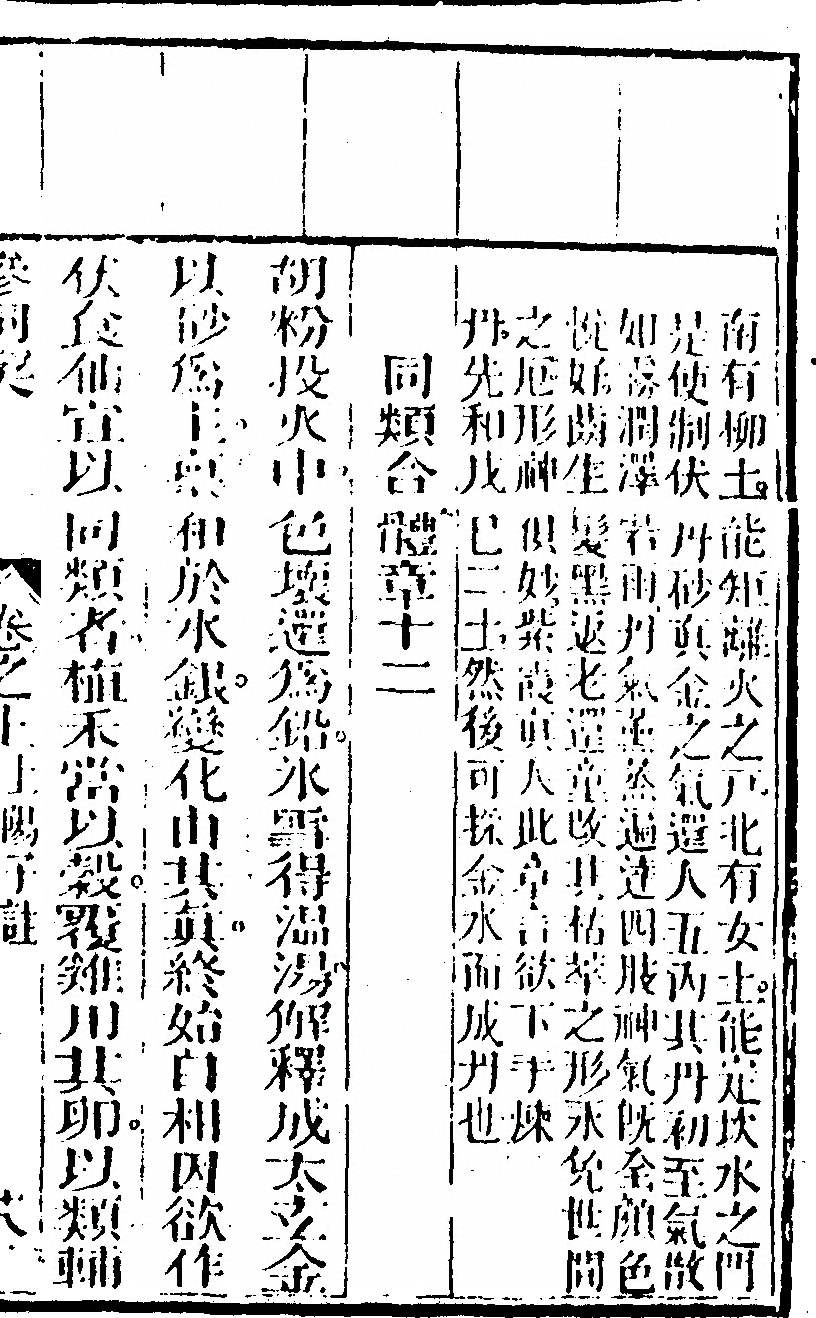 南有柳土。能矩離火之戶北有女土。能定坎水之門
是使制伏丹砂真金之氣還人五內其丹初至氣散
如霧潤澤若雨丹氣薰蒸遍達四肢神氣既全顏色
悅好齒生髮黑返老還童改其枯萃之形永免世間
之厄形神俱妙紫霞真人此章言欲下手煉
丹先和戊巳二土然後可採金水而成丹也
同類合體章十二
胡粉投火中。色壞還爲鉛。氷雪得溫湯。解釋成太玄金
以砂爲主。稟和於水銀。變化由其真。終始自相因欲作
伏食仙宜以同類者。植禾當以穀。覆雞用其卵。以類輔
參同契 卷之上 上陽子註